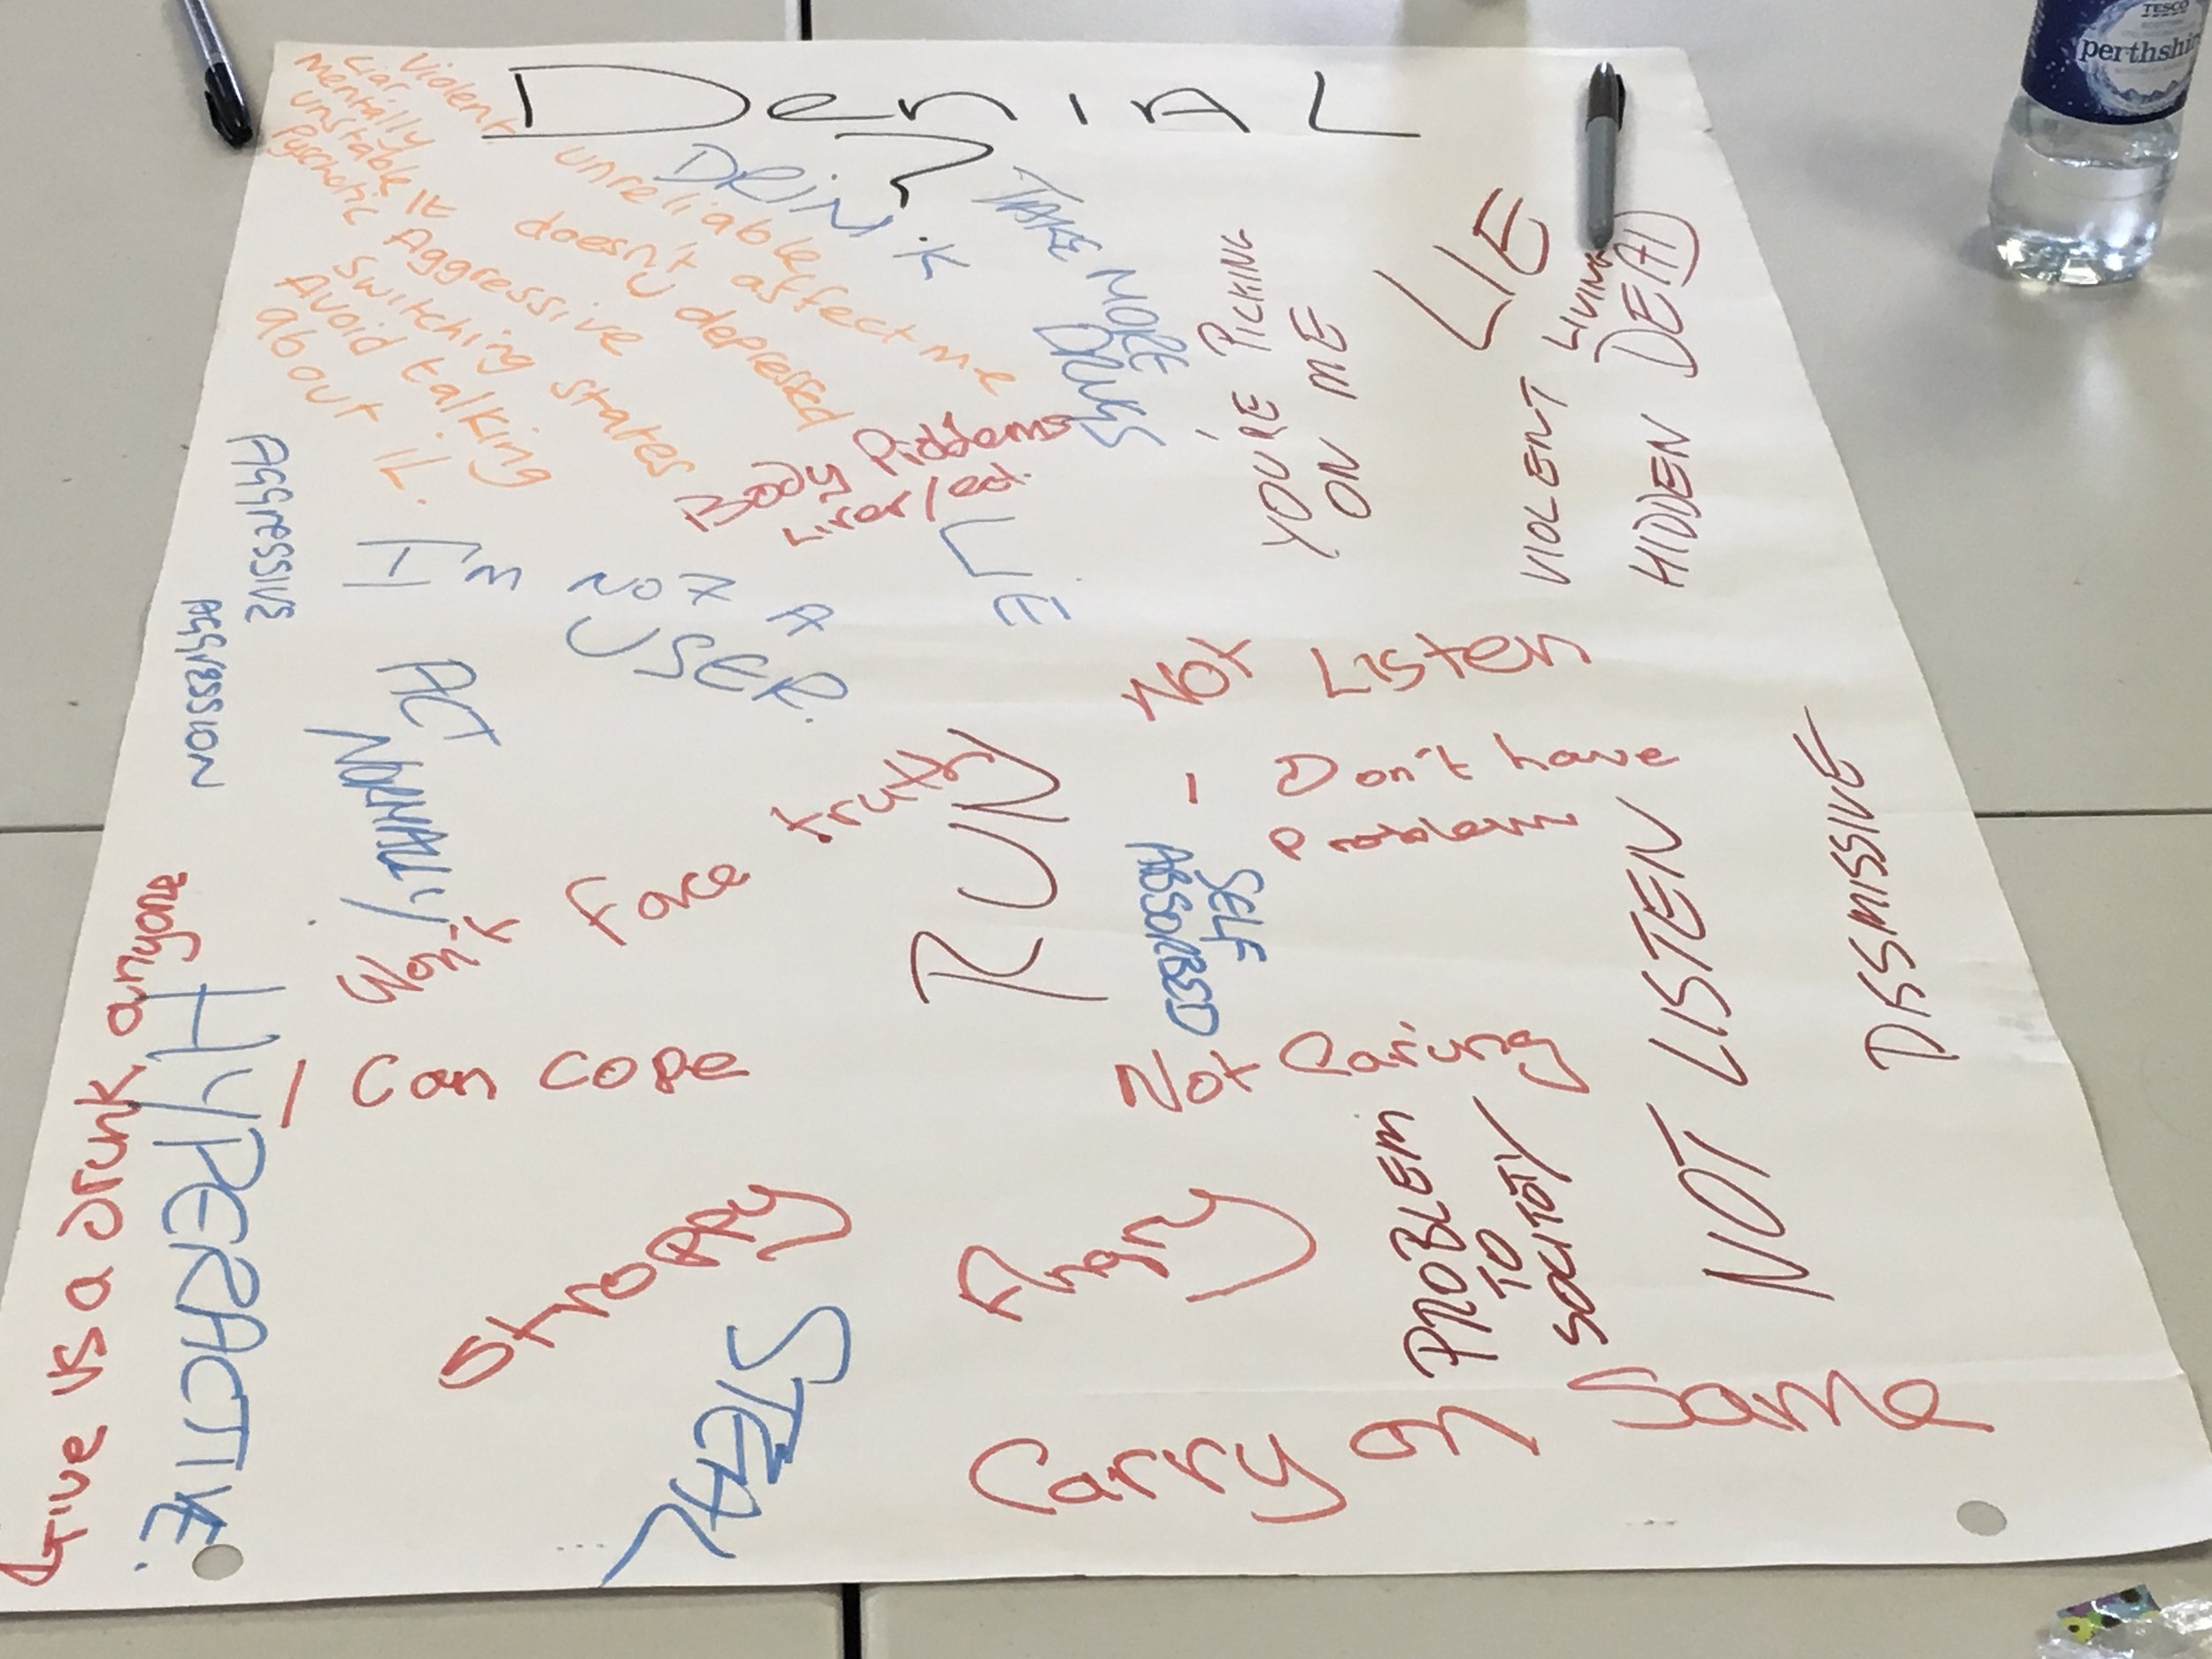 Denial
Violent
Liar
Mentally
unstable
Pyschotic
unreliable
It doesn't affect me
Aggressive
depressed
switching states
Avoid talking
about it.
DRINK
TAKE MORE
DRUGS
YOU'RE PICKING
ON ME
LIE
VIOLENT
LIVING
HIDDEN
TESCO
perthshir
Body
LIE
AGGRESSIVE
AGGRESSION
NOT A
USER.
Not Listen
- Don't have
Problem
Won't face truth
RUN
SELF
ABSORBED
NOT LISTEN
DISMISSIVE
- Can cope
Not Caring
PROBLEM
TO
SOCITOTY
Stroppy
Angry
STEAL
HYPERACTIVE.
us a drunk anyone
Carry on
Same